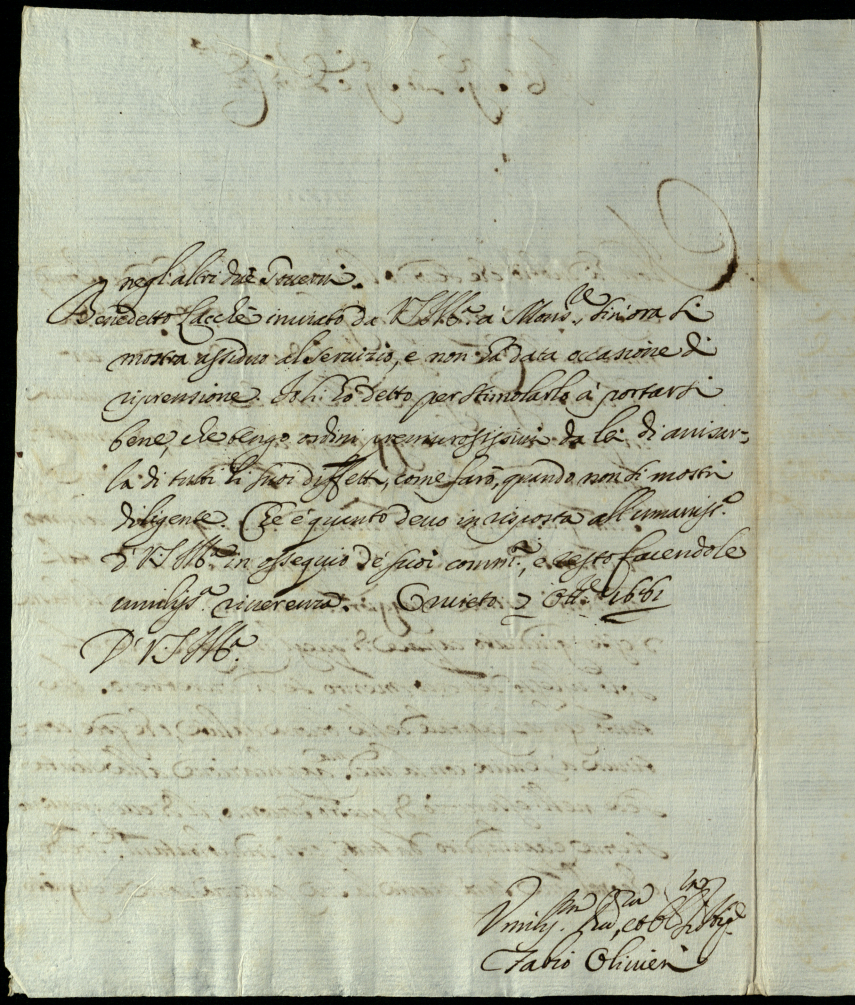 negl'altri due Governi.
Benedetto Lacchè inviato da V.S. Ill.ma à Mons.re, sin'ora si
mostra assiduo al servizio, e non hà data occasione di
riprensione. Io li hò detto per stimolarlo à portarsi
bene, che tengo ordini premurosissimi da lei di avisar-
la di tutti li suoi diffetti, come farò, quando non si mostri
diligente. Che è quanto devo in risposta all'umaniss.ma
di V.S. Ill.ma in ossequio de' suoi comm.ti, e resto facendole
umiliss.ma riverenza. Orvieto 7 Ott.re 1661
D. V.S. Ill.ma
Umiliss.mo Ser.re, et
Fabio Olivieri